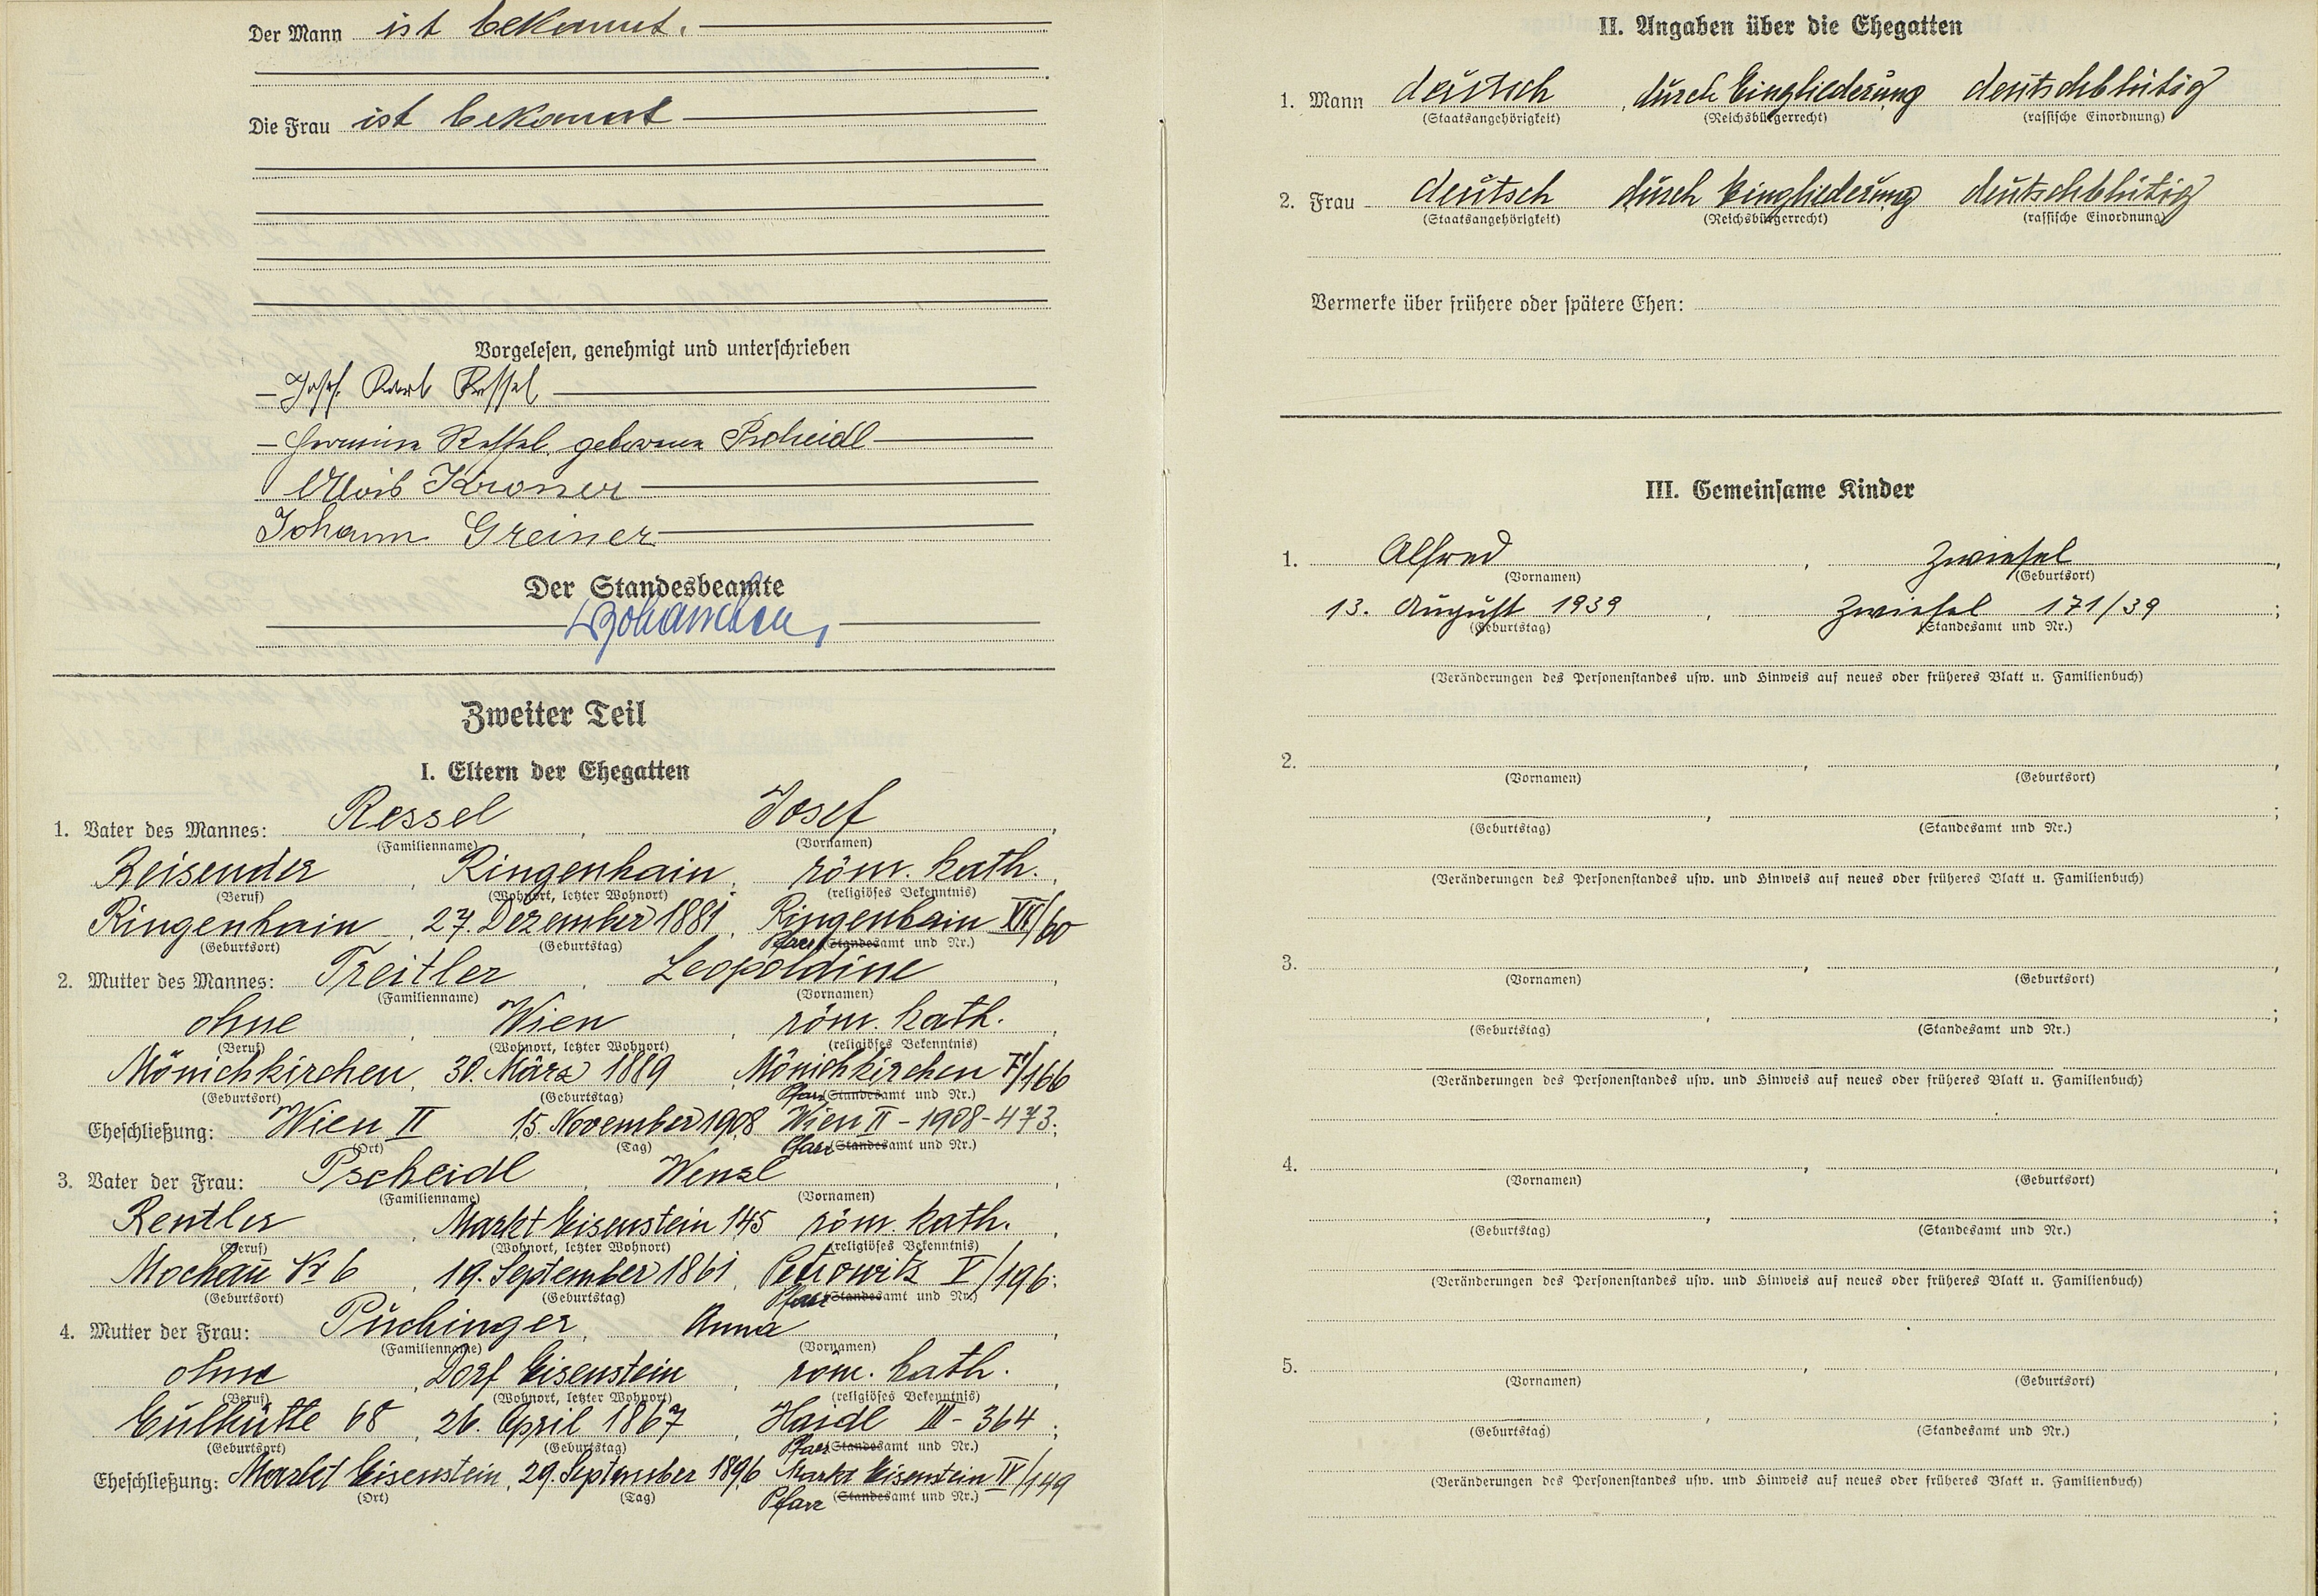 Der Mann ist bekannt.
Die Frau ist bekannt
Vorgelesen, genehmigt und unterschrieben
Josef Karl Ressel
Hermine Ressel geborene Pscheidl
Alois Kroner
Johann Greiner
Der Standesbeamte
Zweiter Teil
I. Eltern der Ehegatten
1. Vater des Mannes: Ressel, Josef,
(Familienname) (Vornamen)
Reisender, Ringenhain, röm. kath.,
(Beruf) (Wohnort, letzter Wohnort) (religiöses Bekenntnis)
Ringenhain, 27. Dezember 1881, Ringenhain VII/60
(Geburtsort) (Geburtstag) Pfarr (Standesamt und Nr.)
2. Mutter des Mannes: Treitler, Leopoldine,
(Familienname) (Vornamen)
ohne, Wien, röm. kath.,
(Beruf) (Wohnort, letzter Wohnort) (religiöses Bekenntnis)
Mönichkirchen, 30. März 1889 Mönichkirchen F/166
(Geburtsort) (Geburtstag) Pfarr (Standesamt und Nr.)
Eheschließung: Wien II 15. November 1908 Wien II - 1908 - 473;
(Ort) (Tag) Pfarr (Standesamt und Nr.)
3. Vater der Frau: Pscheidl, Wenzl,
(Familienname) (Vornamen)
Rentler, Markt Eisenstein 145 röm. kath.,
(Beruf) (Wohnort, letzter Wohnort) (religiöses Bekenntnis)
Mochau Nr 6, 19. September 1861, Petrowitz V/196;
(Geburtsort) (Geburtstag) Pfarr (Standesamt und Nr.)
4. Mutter der Frau: Puchinger, Anna,
(Familienname) (Vornamen)
ohne, Dorf Eisenstein, röm. kath.,
(Beruf) (Wohnort, letzter Wohnort) (religiöses Bekenntnis)
Eulhütte 68, 26. April 1867, Haidl III - 364;
(Geburtsort) (Geburtstag) Pfarr (Standesamt und Nr.)
Eheschließung: Markt Eisenstein, 29. September 1896 Markt Eisenstein IV/149
(Ort) (Tag) Pfarr (Standesamt und Nr.)
II. Angaben über die Ehegatten
1. Mann deutsch, durch Eingliederung deutschblütig
(Staatsangehörigkeit) (Reichsbürgerrecht) (rassische Einordnung)
2. Frau deutsch durch Eingliederung deutschblütig
(Staatsangehörigkeit) (Reichsbürgerrecht) (rassische Einordnung)
Vermerke über frühere oder spätere Ehen:
III. Gemeinsame Kinder
1. Alfred, Zwiesel,
(Vornamen) (Geburtsort)
13. August 1939, Zwiesel 171/39;
(Geburtstag) (Standesamt und Nr.)
(Veränderungen des Personenstandes usw. und Hinweis auf neues oder früheres Blatt u. Familienbuch)
2. , ,
(Vornamen) (Geburtsort)
, ;
(Geburtstag) (Standesamt und Nr.)
(Veränderungen des Personenstandes usw. und Hinweis auf neues oder früheres Blatt u. Familienbuch)
3. , ,
(Vornamen) (Geburtsort)
, ;
(Geburtstag) (Standesamt und Nr.)
(Veränderungen des Personenstandes usw. und Hinweis auf neues oder früheres Blatt u. Familienbuch)
4. , ,
(Vornamen) (Geburtsort)
, ;
(Geburtstag) (Standesamt und Nr.)
(Veränderungen des Personenstandes usw. und Hinweis auf neues oder früheres Blatt u. Familienbuch)
5. , ,
(Vornamen) (Geburtsort)
, ;
(Geburtstag) (Standesamt und Nr.)
(Veränderungen des Personenstandes usw. und Hinweis auf neues oder früheres Blatt u. Familienbuch)